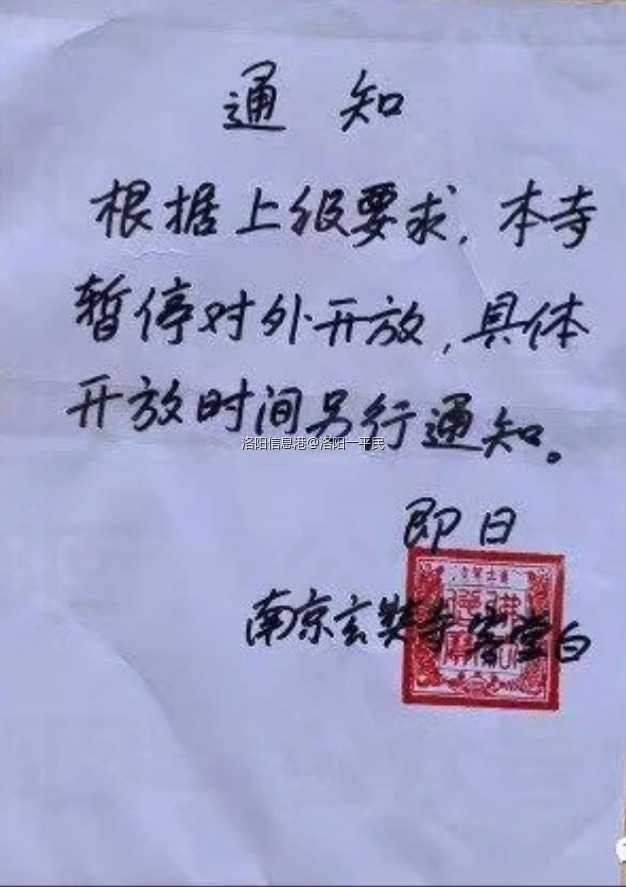 通知
根据上级要求，本寺
暂停对外开放，具体
开放时间另行通知。
洛阳信息港@洛阳一平民
即日
南京玄奘寺客堂白